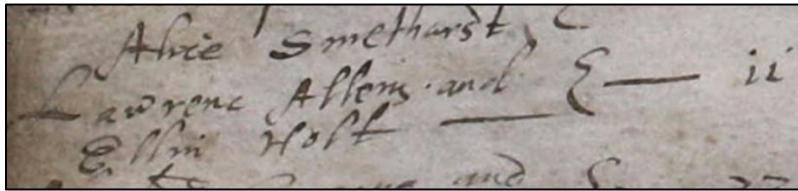 Alice Smetharst
Lawrenc Allens and — ii
Ellin Holt
and